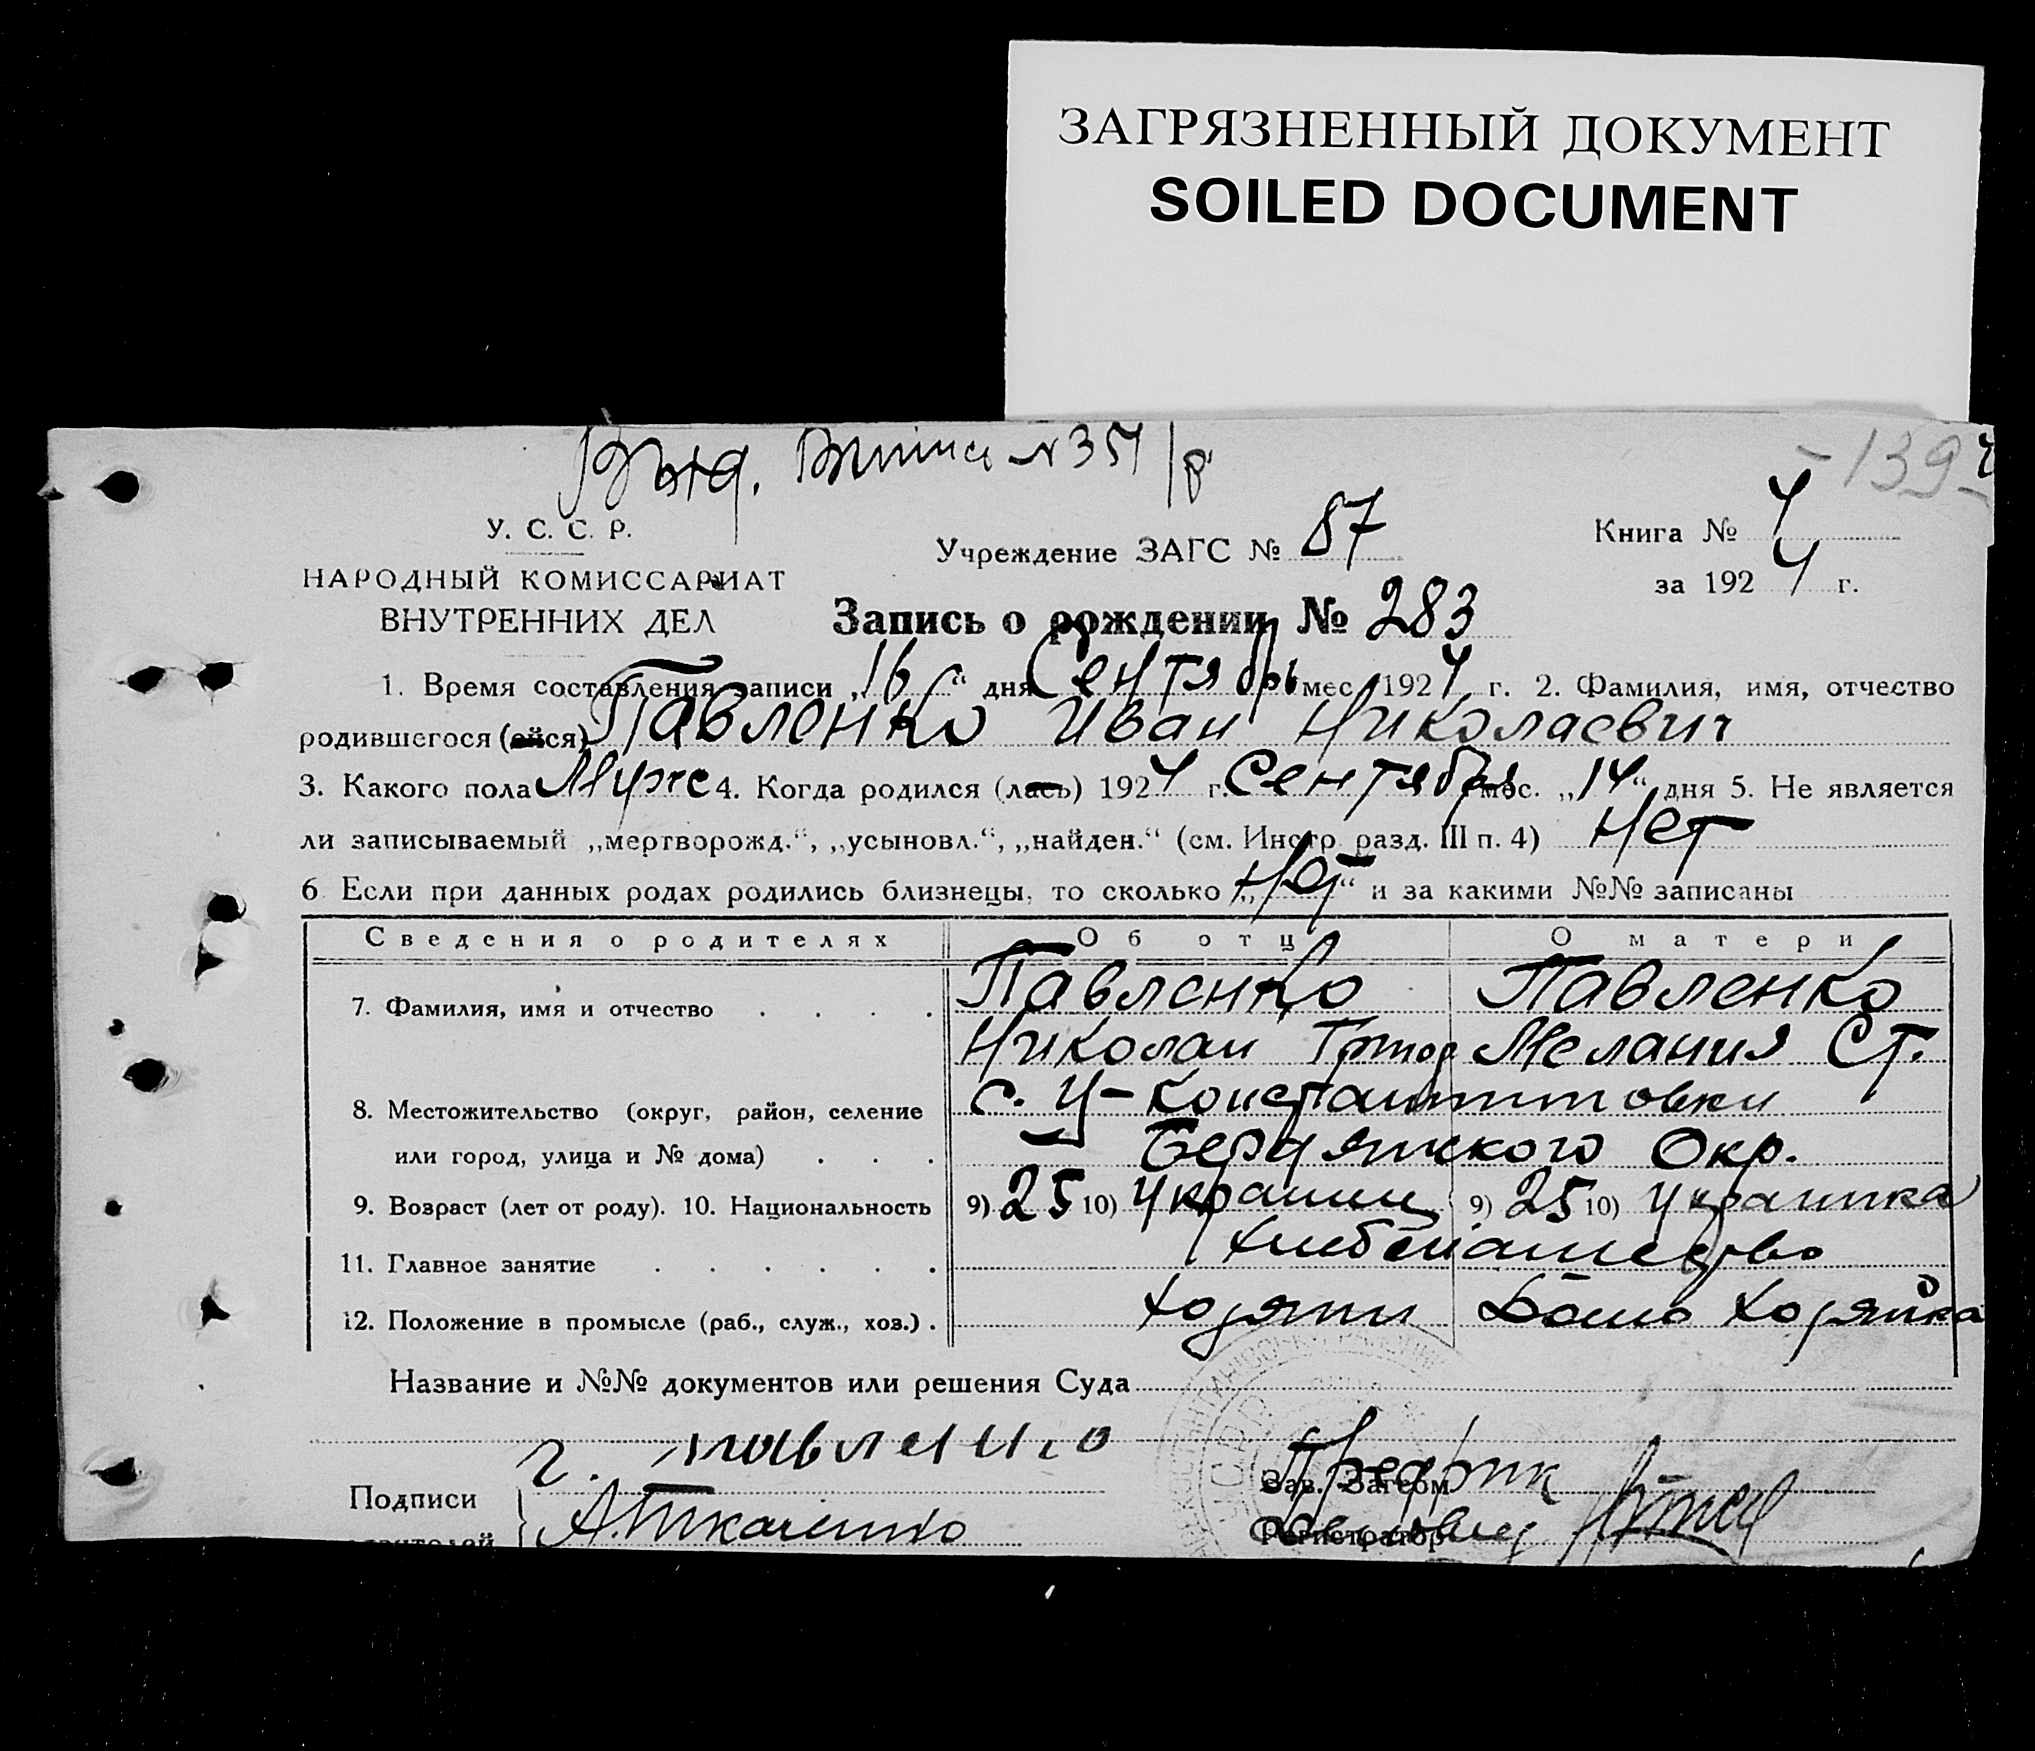 ЗАГРЯЗНЕННЫЙ ДОКУМЕНТ
SOILED DOCUMENT
Выд. №
-139-
У. С. С. Р.
НАРОДНЫЙ КОМИССАРИАТ
ВНУТРЕННИХ ДЕЛ
Учреждение ЗАГС № 87
Книга № 4
за 1924 г.
Запись о рождении № 283
1. Время составления записи „16“ дня Сентябрь мес. 1924 г. 2. Фамилия, имя, отчество
родившегося (ейся) Павленко Иван Николаевич
3. Какого пола Мужс 4. Когда родился (лась) 1924 г. Сентября мес. „14“ дня 5. Не является
ли записываемый „мертворожд.“, „усыновл.“, „найден.“ (см. Инстр. разд. III п. 4) Нет
6. Если при данных родах родились близнецы, то сколько „Нет“ и за какими №№ записаны
Сведения о родителях Об отц О матери
7. Фамилия, имя и отчество . . . . Павленко Павленко
Николай Григор Мелания Ст.
8. Местожительство (округ, район, селение с. Ц-Константиновки
или город, улица и № дома) . . . Бердянского Окр.
9. Возраст (лет от роду). 10. Национальность 9) 25 10) Украинц 9) 25 10) Украинка
11. Главное занятие . . . . . . Хлебопашество
12. Положение в промысле (раб., служ., хоз.) . Хозяин Домо Хозяйка
Название и №№ документов или решения Суда
г. павленко
Подписи
А. Ткаченко
Зав. Загсом
Регистратор
УССР